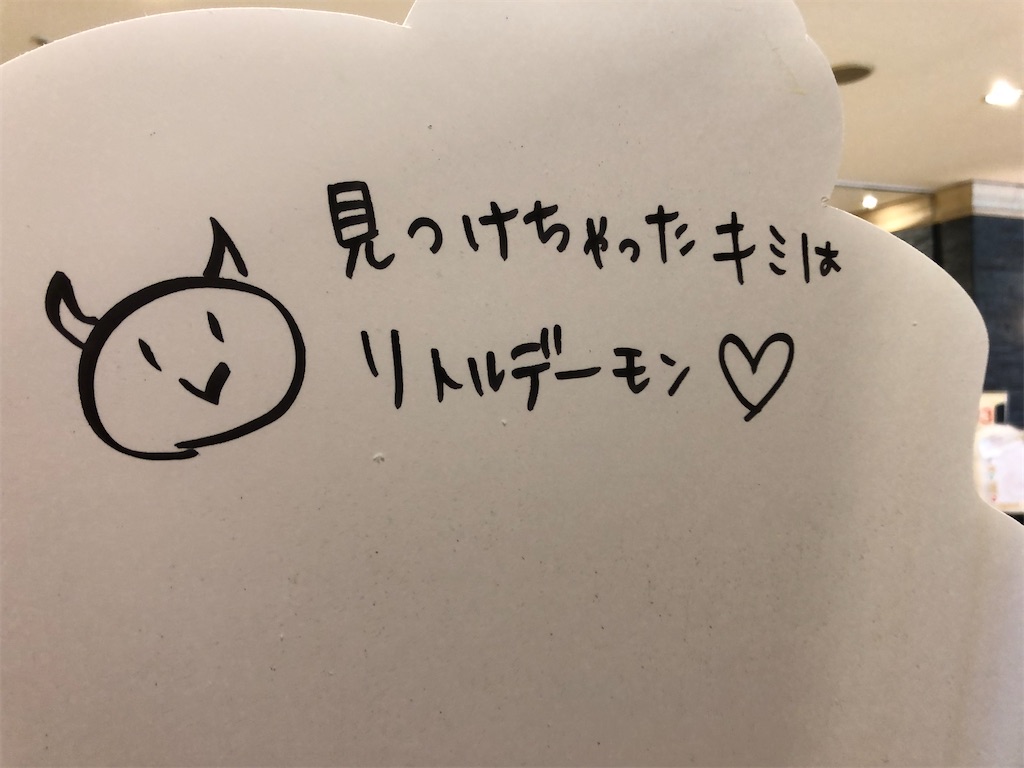 見つけちゃったキミは
リトルデーモン♡